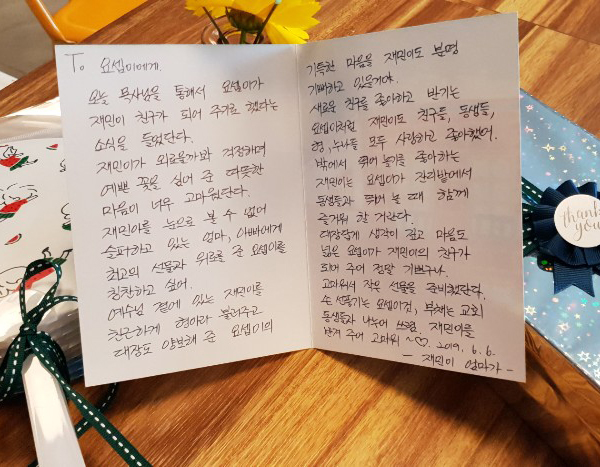 To 요셉이에게.
오늘 목사님을 통해서 요셉이가
재민이 친구가 되어 주기로 했다는
소식을 들었단다.
재민이가 외로울까봐 걱정하며
예쁜 꽃을 심어 준 따뜻한
마음이 너무 고마웠단다.
재민이를 눈으로 볼 수 없어
슬퍼하고 있는 엄마, 아빠에게
최고의 선물과 위로를 준 요셉이를
칭찬하고 싶어.
예수님 곁에 있는 재민이를
친근하게 형아라 불러주고
대장도 양보해 준 요셉이의
기특한 마음을 재민이도 분명
기뻐하고 있을거야.
새로운 친구를 좋아하고 반기는
요셉이처럼 재민이도 친구들, 동생들,
형, 누나들 모두 사랑하고 좋아했어.
밖에서 뛰어 놀기를 좋아하는
재민이는 요셉이가 잔디밭에서
동생들과 뛰어 놀 때 함께
즐거워 할 거란다.
대장답게 생각이 깊고 마음도
넓은 요셉이가 재민이의 친구가
되어 주어 정말 기쁘구나.
고마워서 작은 선물을 준비했단다.
손 선풍기는 요셉이꺼, 부채는 교회
동생들과 나누어 쓰렴. 재민이를
반겨 주어 고마워 ~♡. 2019. 6. 6.
- 재민이 엄마가 -
thank
you